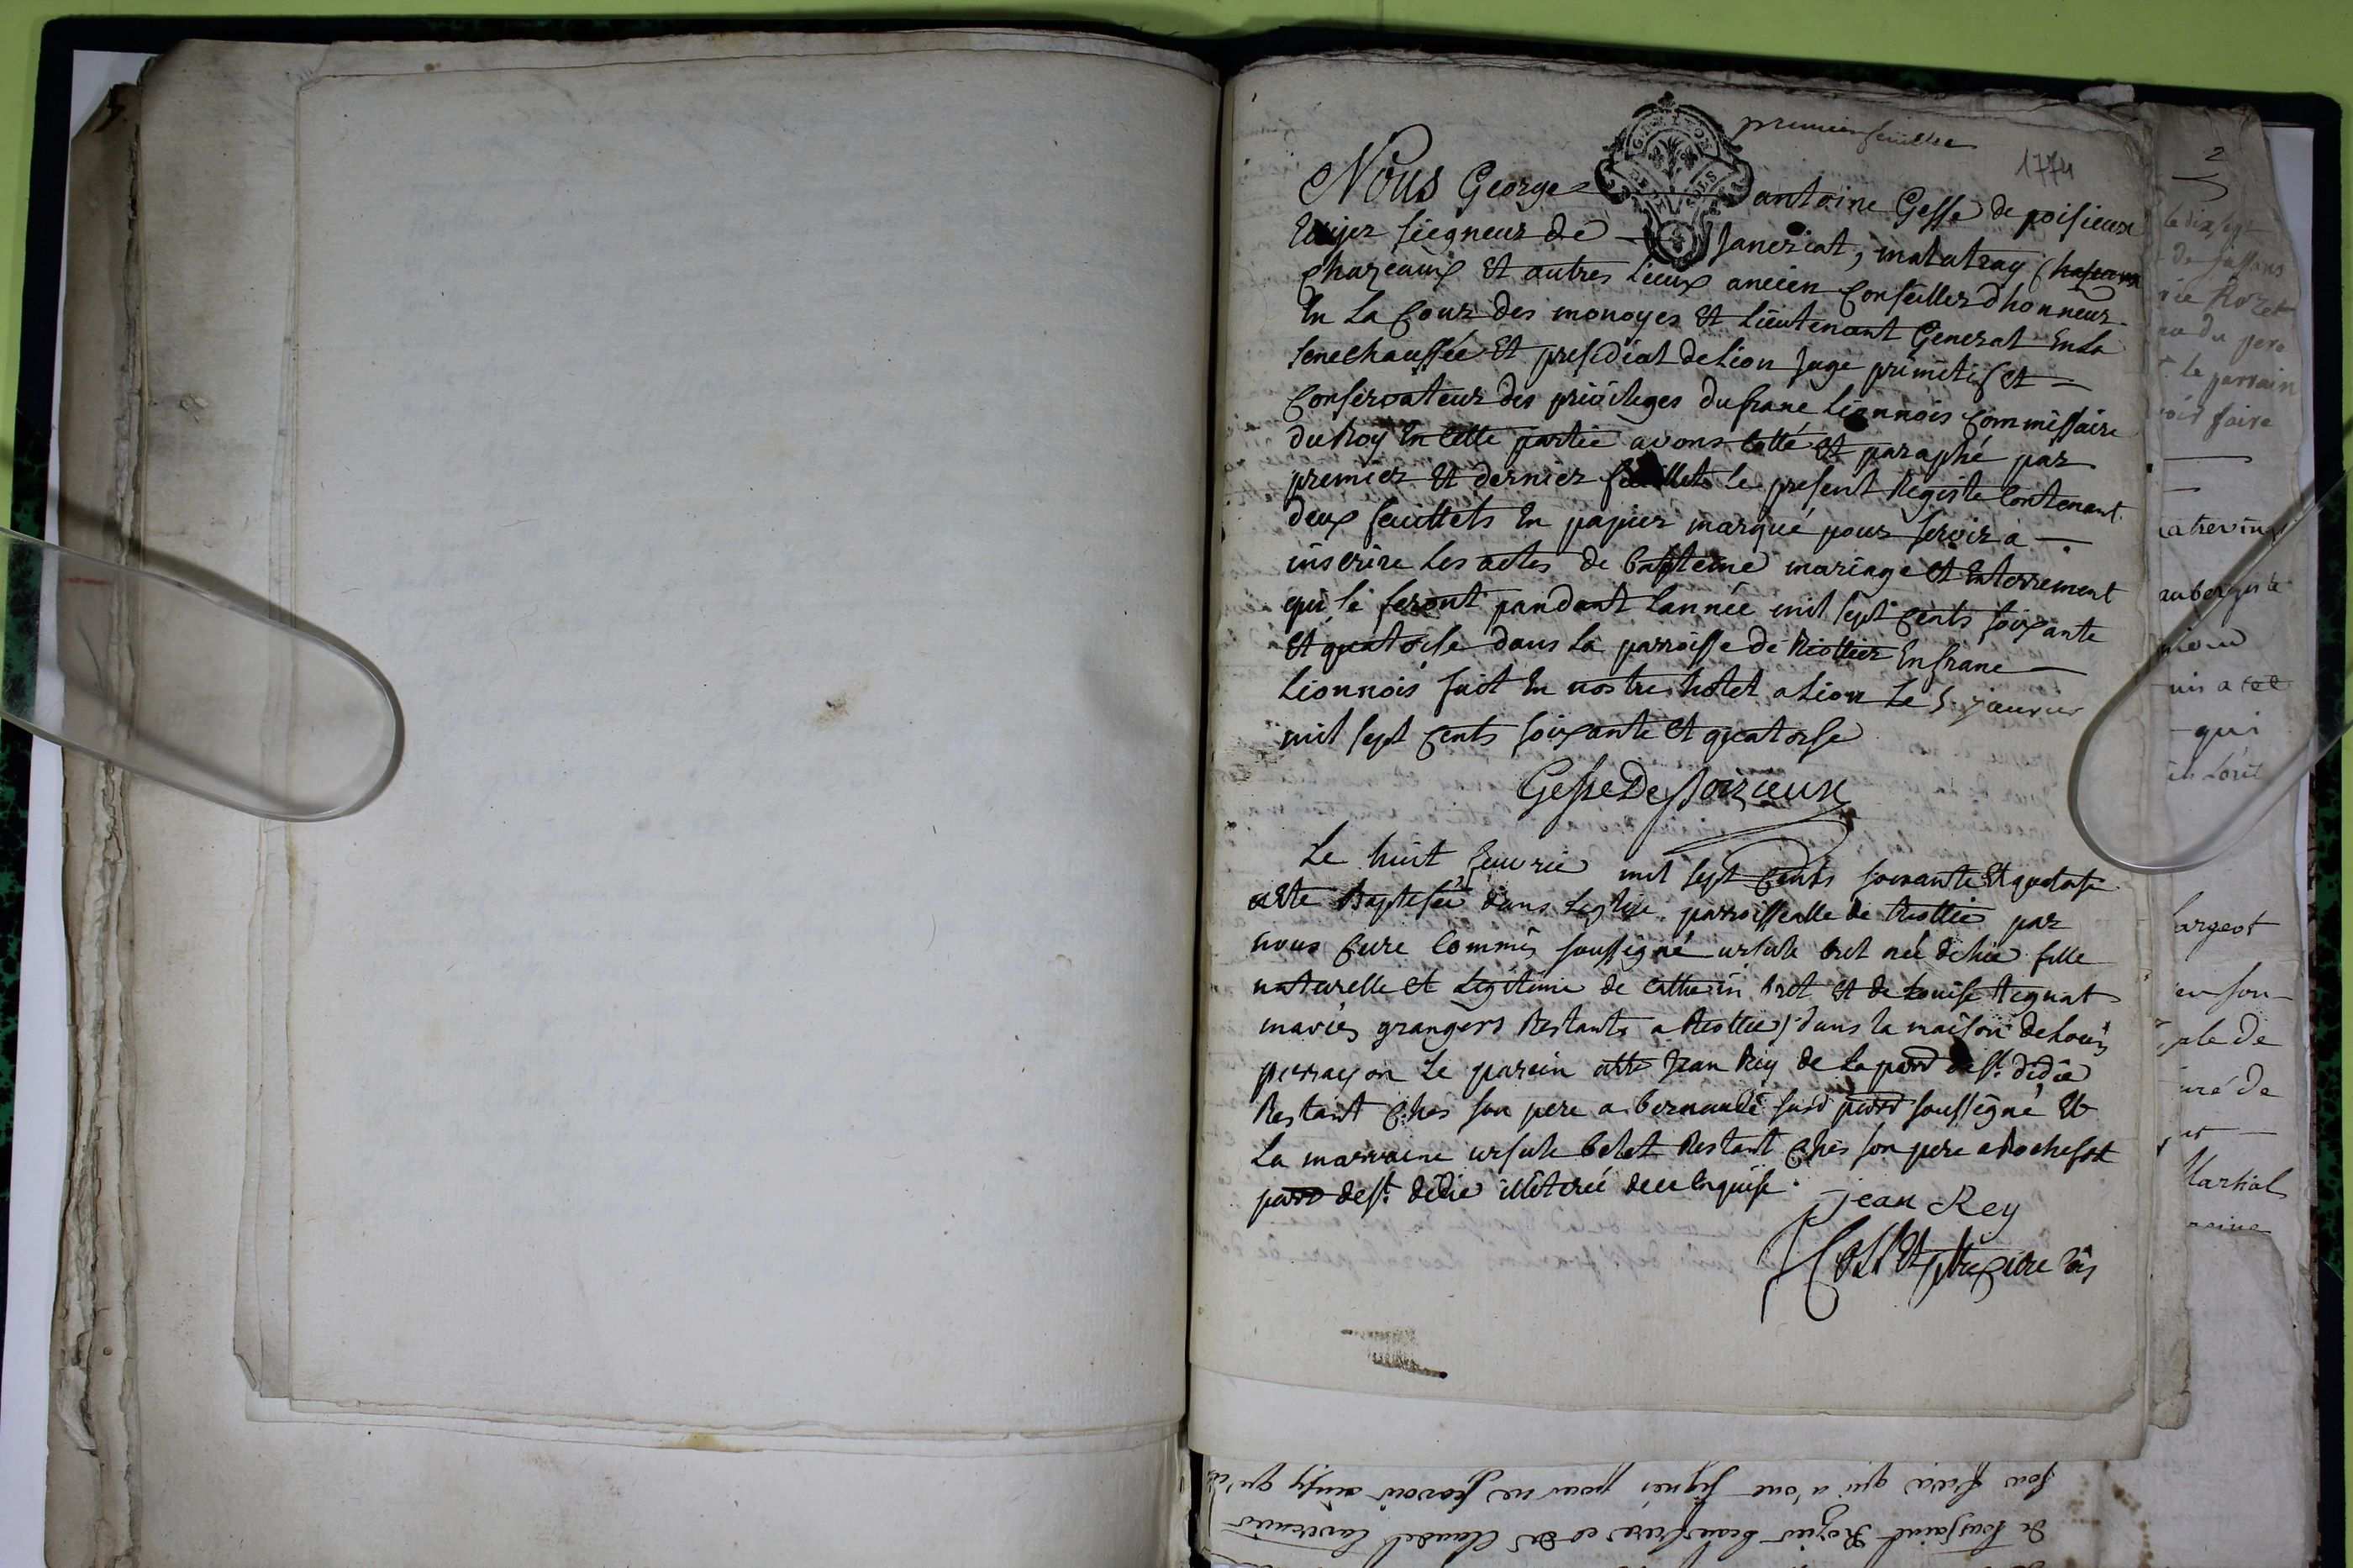 premier feuillet
1774
Nous George antoine Gesse de poisieux
Ecuyer seigneur de Janeriat, malatray
Chazeaux et autres Lieux ancien Conseiller dhonneur
En La Cour des monoyes et Lieutenant General En La
senechaussée Et presidial de Lion Juge primitif et
Conservateur des privileges du franc Lionnois Commissaire
du Roy En Cette partie avons Cotté et paraphé par
premier et dernier feuillet le present Registe Contenant
deux feuillets En papier marqué pour servir a
inscrire Les actes de Bapteme mariage et Enterrement
qui se feront pandant Lannée mil sept Cents soixante
et quatorse dans La parroisse de Riottier En franc
Lionnois fait En nostre hotel a Lion Le 5 janvier
mil sept Cents soixante et quatorse
Gesse De Poizieux
Le huit feuvrie mil sept Cents soixante et quatorse
a Ete Baptisée dans Leglise parroissealle de Riottie par
nous Cure Commis soussigné ursule bret née dehie fille
naturelle et Legitime de Catherin bret et de Louise Regnat
mariés grangers Restants a Riottier dans la maison de Louis
perrayon Le parein atte Jean Rey de La parr de st. didie
Restant Ches son pere a bernaudé susd parr soussigné et
La marraine ursule belet Restant Ches son pere a Rochefort
parr de st. didie illiterée de ce Enquise.
jean Rey
2
le dixsept
rie Rozet
du pere
le parrain
faire
aubergiste
qui
largeot
ple de
uré de
Martial
son frere qui n'ont signés pour ne scavoir ainsy
de toussaint Rozier beaufrere et de Claude Laverniere